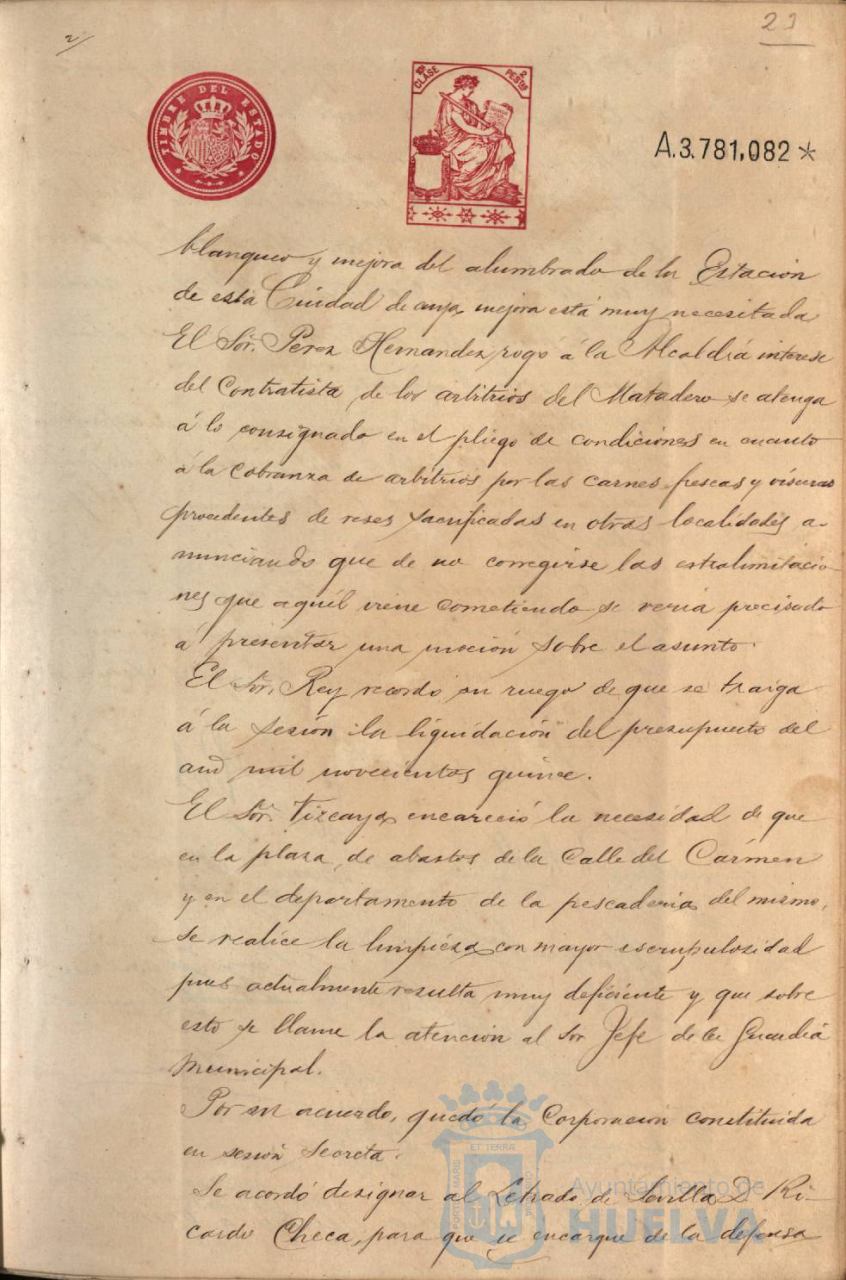 2/
23
TIMBRE DEL ESTADO
10ª CLASE
2 PESTAS
A.3.781,082*
blanqueo y mejora del alumbrado de la Estación
de esta Ciudad de cuya mejora está muy necesitada
El Sor. Perez Hernandez rogó á la Alcaldiá interese
del Contratista de los arbitrios del Matadero se atenga
á lo consignado en el pliego de condiciones en cuanto
á la cobranza de arbitrios por las carnes frescas y visceras
procedentes de reses sacrificadas en otras localidades a-
nunciando que de no corregirse las extralimitacio-
nes que aquél viene cometiendo se veria precisado
á presentar una moción sobre el asunto.
El Sor. Rey recordó su ruego de que se traiga
á la sesión la liquidación del presupuesto del
año mil novecientos quince.
El Sor. Vizcaya encareció la necesidad de que
en la plaza de abastos de la Calle del Cármen
y en el departamento de la pescaderia del mismo,
se realice la limpieza con mayor escrupulosidad
pues actualmente resulta muy deficiente y que sobre
esto se llame la atención al Sor Jefe de la Guardiá
Municipal.
Por un acuerdo, quedó la Corporación constituida
en sesión Secreta.
Se acordó designar al Letrado de Sevilla D. Ri-
cardo Checa, para que se encargue de la defensa
PORTUS MARIS ET TERRAE CUSTODIA
Ayuntamiento de
HUELVA